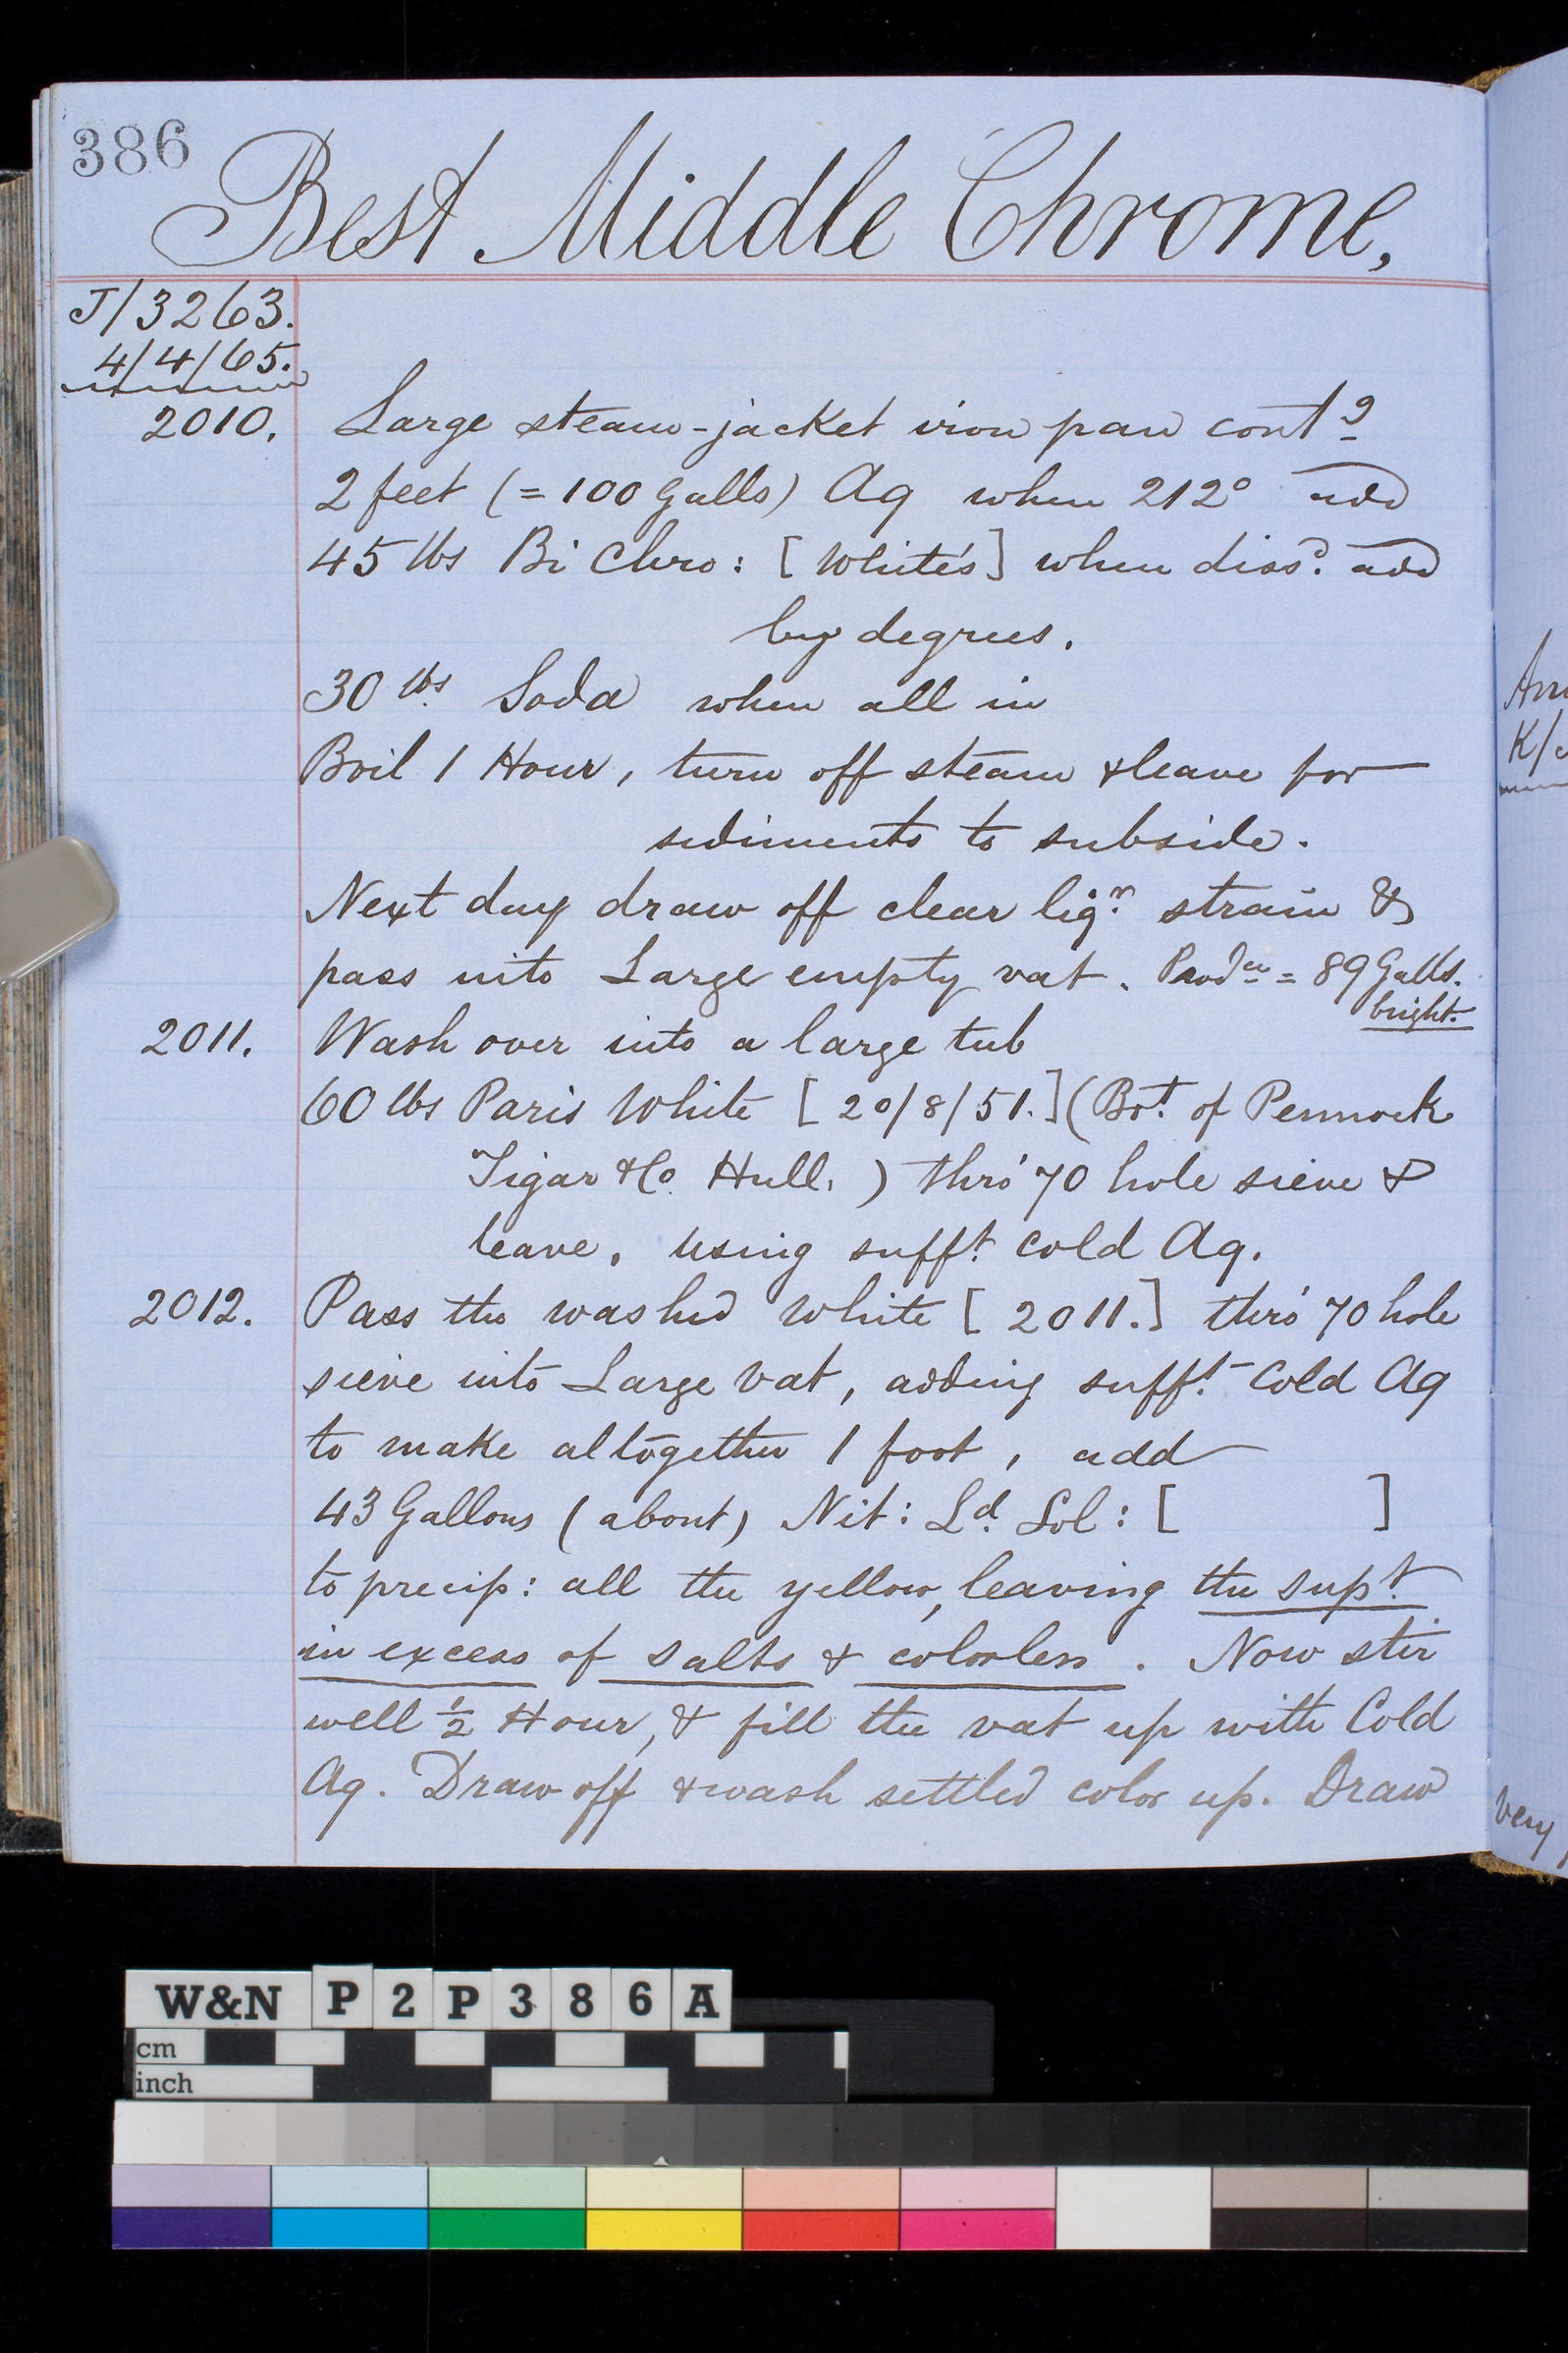 386
Best Middle Chrome,
J/3263.
4/4/65.
2010. Large steam-jacket iron pan contg
2 feet (=100 Galls) Aq when 212° add
45 lbs Bi Chro: [White's] when dissd. add
by degrees.
30 lbs. Soda when all in
Boil 1 Hour, turn off steam & leave for
sediments to subside.
Next day draw off clear liqr. strain &
pass into Large empty vat. Prodce = 89 Galls.
bright.
2011. Wash over into a large tub
60 lbs Paris White [20/8/51.] (Bot. of Pennock
Tigar & Co. Hull.) thro' 70 hole sieve &
leave, using sufft. cold Aq.
2012. Pass the washed White [2011.] thro' 70 hole
sieve into Large Vat, adding sufft. Cold Aq
to make altogether 1 foot, add
43 Gallons (about) Nit: Ld. Sol: [ ]
to precip: all the yellow, leaving the supt.
in excess of salts & colorless. Now stir
well ½ Hour, & fill the vat up with Cold
Aq. Draw off & wash settled color up. Draw
K/
very
W&N P2P386A
cm
inch